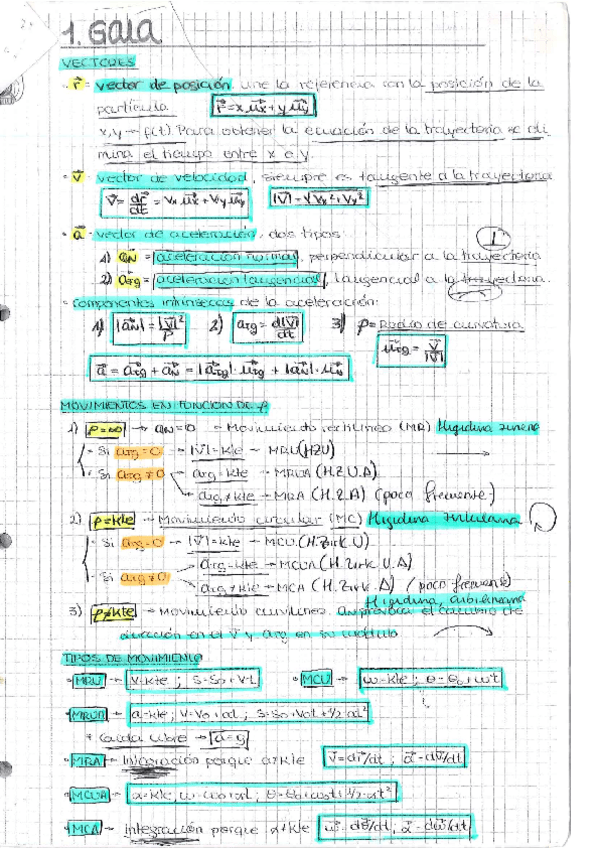 1. Gaia
VECTORES
· r⃗ = vector de posición, une la referencia con la posición de la
partícula r⃗ = x·u⃗x + y·u⃗y
x, y → f(t) Para obtener la ecuación de la trayectoria se eli
mina el tiempo entre x e y.
· v⃗ = vector de velocidad, siempre es tangente a la trayectoria
v⃗ = dr⃗/dt = Vx·u⃗x + Vy·u⃗y |v⃗| = √Vx² + Vy²
· a⃗ = vector de aceleración, dos tipos:
1) aN = aceleración normal, perpendicular a la trayectoria
2) atg = aceleración tangencial, tangencial a la trayectoria.
· Componentes intrínsecas de la aceleración:
1) |a⃗N| = |v⃗|²/ρ 2) atg = d|v⃗|/dt 3) ρ = Radio de curvatura
u⃗tg = v⃗/|v⃗|
a⃗ = a⃗tg + a⃗N = |a⃗tg|·u⃗tg + |a⃗N|·u⃗N
MOVIMIENTOS EN FUNCION DE ρ
1) ρ=∞ → aN=0 → Movimiento rectilíneo (MR) Higidura zuzena
· Si atg=0 → |v⃗|=kte → MRU (HZU)
· Si atg≠0 atg=kte → MRUA (H.Z.U.A)
atg≠kte → MRA (H.Z.A) (poco frecuente)
2) ρ=kte → Movimiento circular (MC) Higidura zirkularra
· Si atg=0 → |v⃗|=kte → MCU (H.Zirk.U)
atg=kte → MCUA (H.Zirk.U.A)
· Si atg≠0
atg≠kte → MCA (H.Zirk.A) (poco frecuente)
Higidura
3) ρ≠kte → Movimiento curvilíneo. aN provoca el cambio de
dirección en el v⃗ y atg en su módulo
TIPOS DE MOVIMIENTO
· MRU → V=kte ; S=S0+V·t · MCU → ω=kte ; θ=θ0+ωt
· MRUA → a=kte ; V=V0+at ; S=S0+V0t+1/2·at²
* Caída libre → a⃗=g⃗
· MRA → Integración porque a≠kte v⃗=dr⃗/dt ; a⃗=dv⃗/dt
· MCUA → α=kte ; ω=ω0+αt ; θ=θ0+ω0t+1/2·αt²
· MCA → Integración porque α≠kte ω⃗=dθ⃗/dt, α⃗=dω⃗/dt